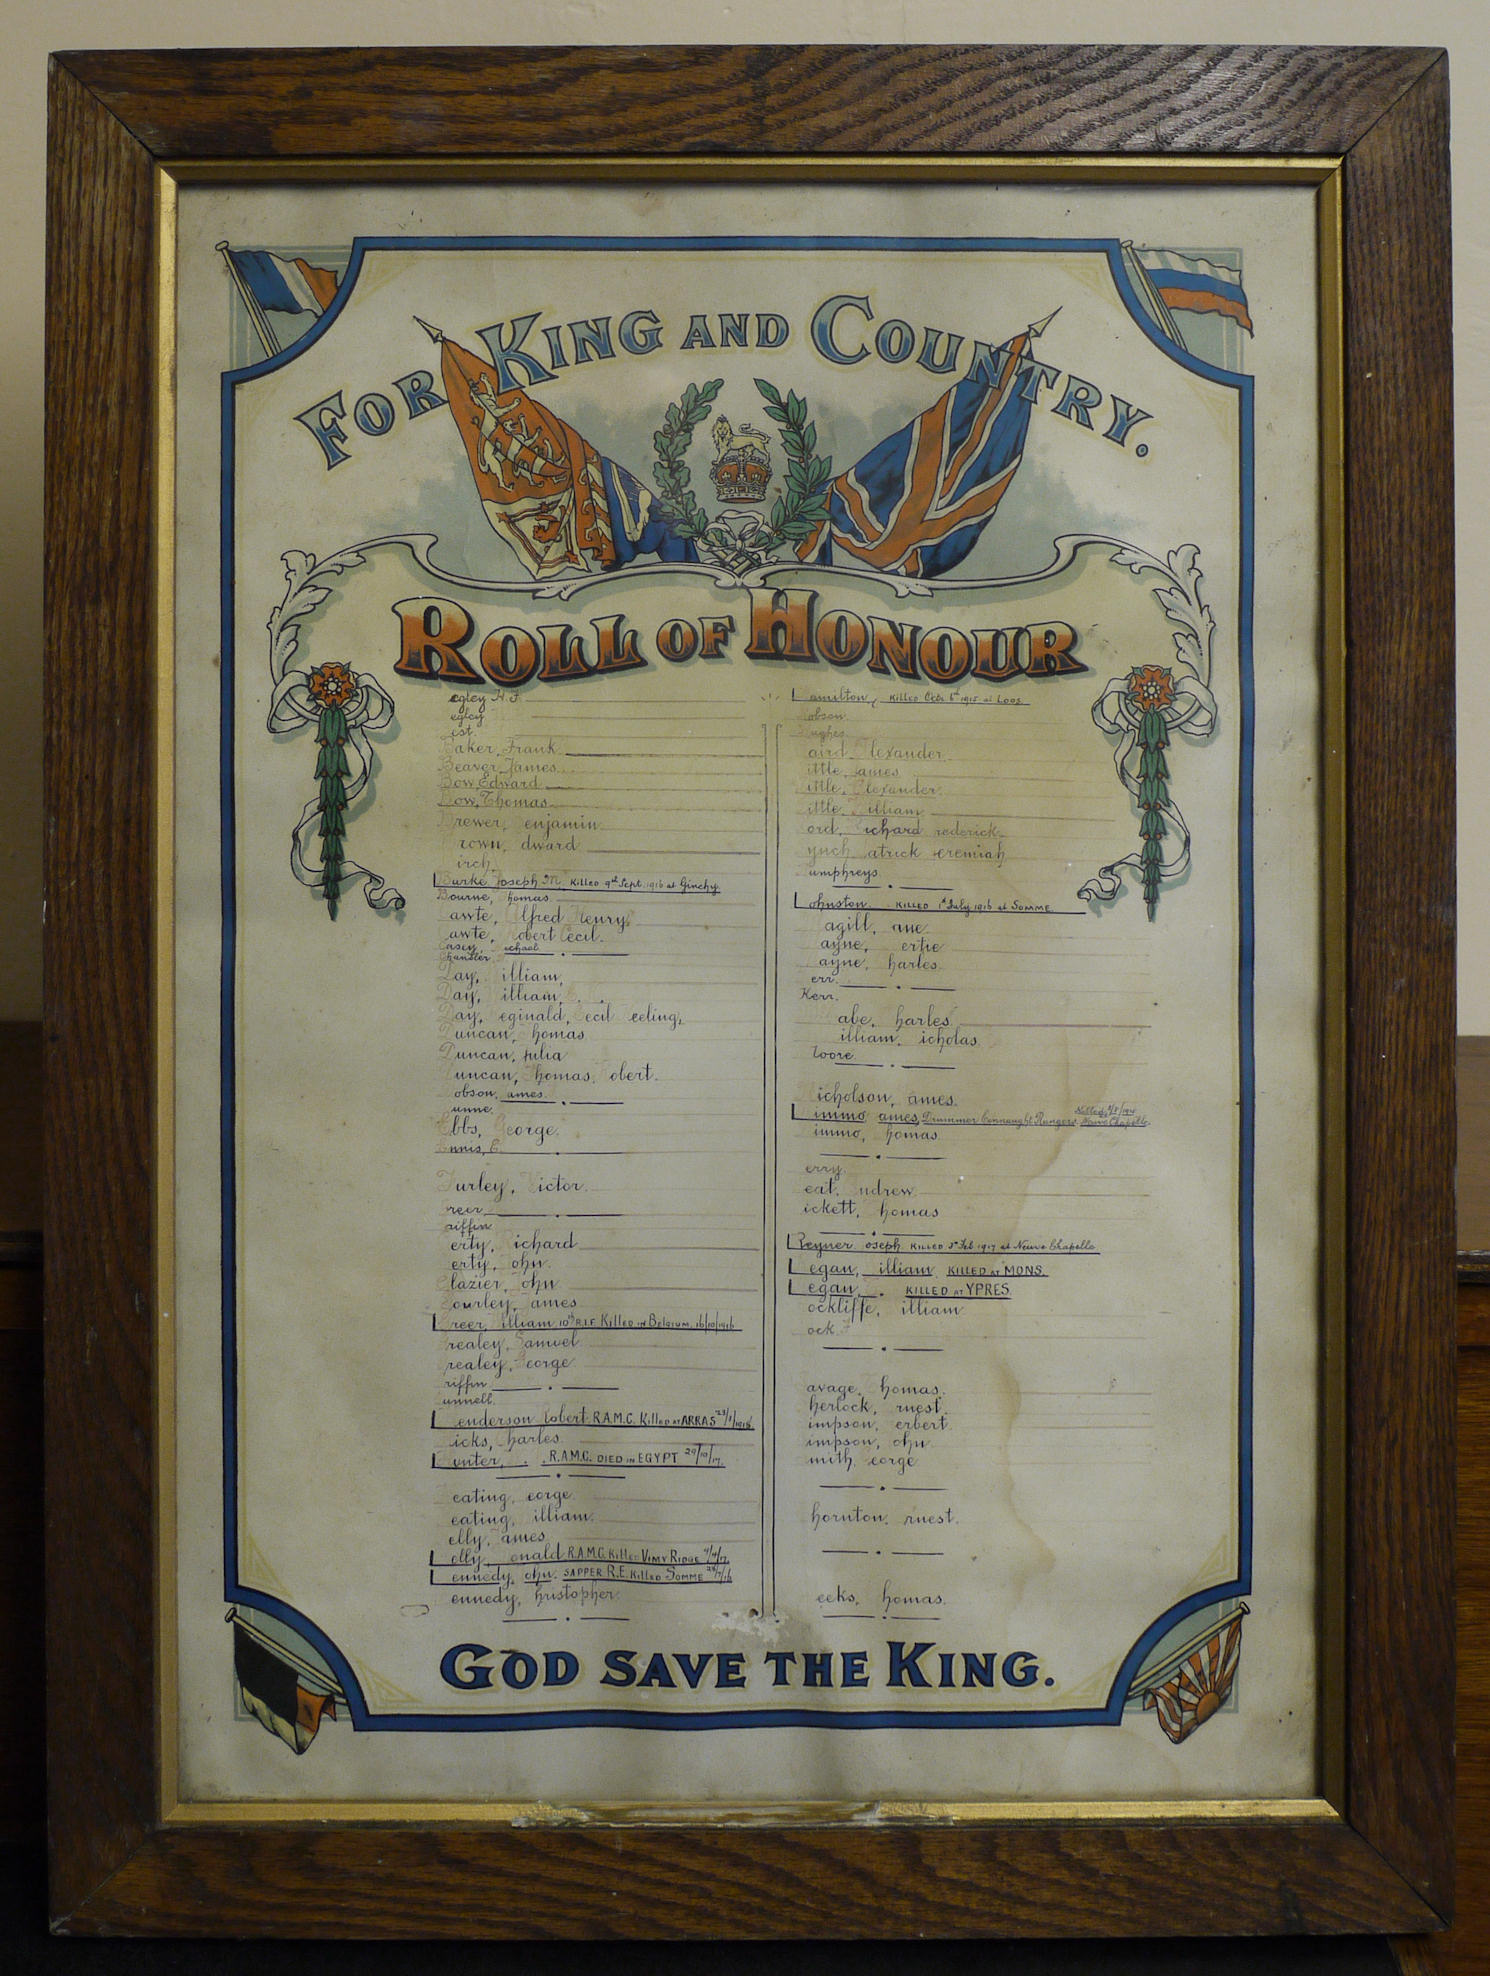 FOR KING AND COUNTRY.
ROLL OF HONOUR
egley H.F.
egley
ist.
Baker, Frank.
Beaver, James.
Bow, Edward
Bow, Thomas
rewer, enjamin
rown, dward
irch
Burke Joseph Mc. KILLED 9th Sept. 1916 at Ginchy.
Bourne, homas.
awte, Alfred Henry,
awte, obert Cecil.
Casey, ichael.
Chandler.
Day, illiam,
Day, illiam,
Day, eginald, ecil eeling,
uncan, homas
Duncan, Julia
uncan, homas, obert.
obson, ames.
unne.
Ebbs, George.
Ennis, E.
urley, ictor.
reer
riffin
erty, ichard
erty, ohn.
lazier, ohn
ourley, ames
reer, illiam 10th R.I.F. Killed in Belgium. 16/10/1916
realey, Samuel
realey, George
riffin
unnell
enderson obert R.A.M.C. Killed at ARRAS 23/1/1918
icks, harles
unter, . . R.A.M.C. DIED in EGYPT 29/10/17.
eating, eorge.
eating, illiam.
elly, ames
elly, onald R.A.M.C. Killed VIMY RIDGE 4/4/17.
ennedy, ohn. SAPPER R.E. Killed SOMME 28/7/16
ennedy, hristopher
amilton, KILLED Octr. 6th 1915 at LOOS.
obson.
ughes.
aird lexander
ittle, ames
ittle, Alexander.
ittle, illiam
ord, ichard rederick
ynch atrick eremiah
umphreys.
ohnston. KILLED 1st July 1916 at SOMME.
agill, ane
ayne, ertie
ayne, harles.
err.
Kerr.
abe, harles
illiam, icholas
oore.
icholson, ames.
immo ames, Drummer Connaught Rangers. Killed Neuve Chapelle.
immo, homas
erry.
eat, ndrew
ickett, homas
Reyner oseph. KILLED 3rd Feb 1917 at Neuve Chapelle
egan, illiam. KILLED AT MONS.
egan, . KILLED AT YPRES.
ockliffe, illiam
ock.
avage, homas.
herlock, rnest.
impson, erbert.
impson, ohn
mith, eorge
hornton, rnest.
eeks, homas.
GOD SAVE THE KING.